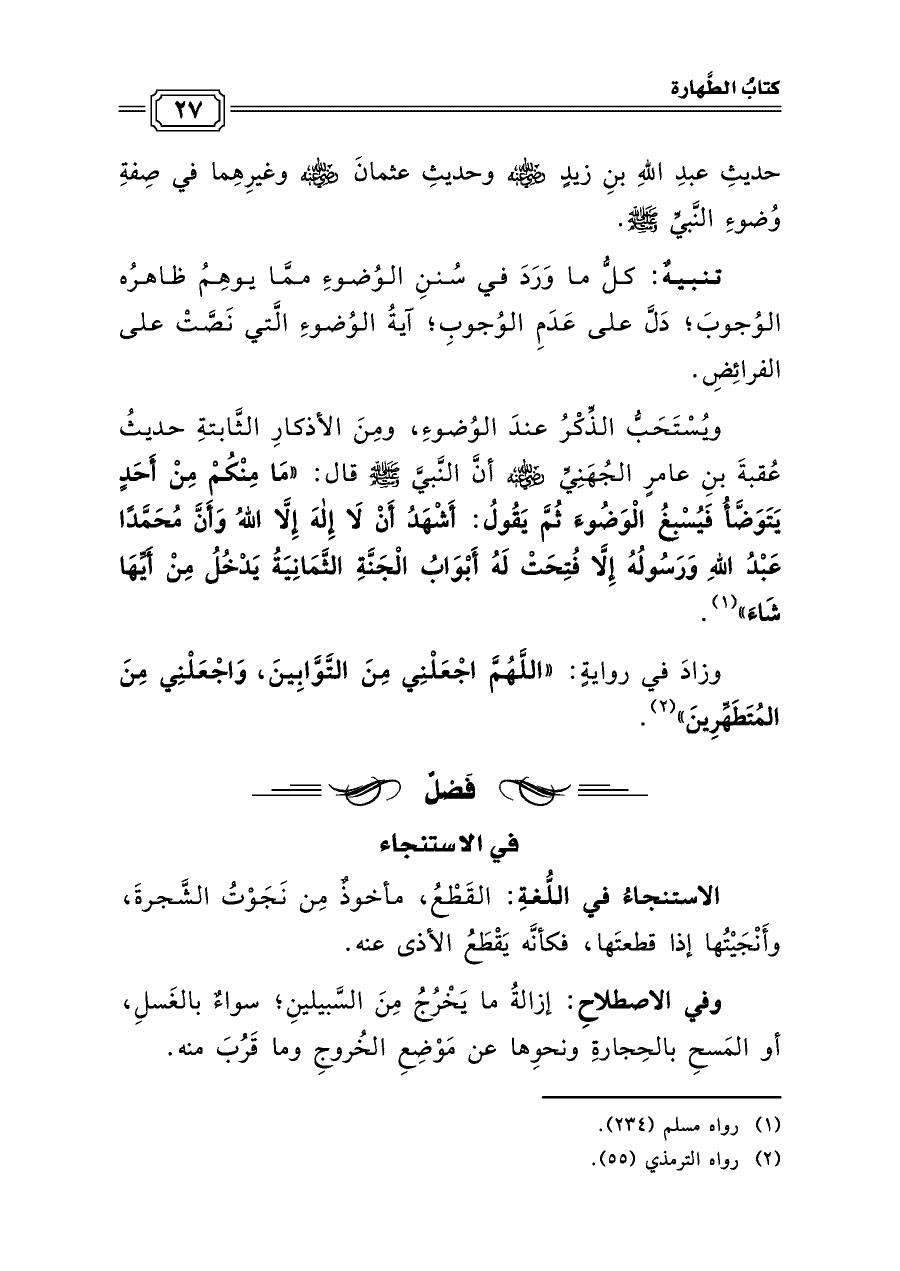 كتابُ الطَّهارة
٢٧
حديثِ عبدِ اللهِ بنِ زيدٍ ﵁ وحديثِ عثمانَ ﵁ وغيرِهِما في صِفةِ
وُضوءِ النَّبيِّ ﷺ.
تنبيهٌ: كلُّ ما وَرَدَ في سُننِ الوُضوءِ ممَّا يوهِمُ ظاهرُه
الوُجوبَ؛ دَلَّ على عَدَمِ الوُجوبِ؛ آيةُ الوُضوءِ الَّتي نَصَّتْ على
الفرائِضِ.
ويُسْتَحَبُّ الذِّكْرُ عندَ الوُضوءِ، ومِنَ الأذكارِ الثَّابتةِ حديثُ
عُقبةَ بنِ عامرٍ الجُهَنِيِّ ﵁ أنَّ النَّبيَّ ﷺ قال: «مَا مِنْكُمْ مِنْ أَحَدٍ
يَتَوَضَّأُ فَيُسْبِغُ الْوَضُوءَ ثُمَّ يَقُولُ: أَشْهَدُ أَنْ لَا إِلٰهَ إِلَّا اللهُ وَأَنَّ مُحَمَّدًا
عَبْدُ اللهِ وَرَسُولُهُ إِلَّا فُتِحَتْ لَهُ أَبْوَابُ الْجَنَّةِ الثَّمَانِيَةُ يَدْخُلُ مِنْ أَيِّهَا
شَاءَ»(١).
وزادَ في روايةٍ: «اللَّهُمَّ اجْعَلْنِي مِنَ التَّوَّابِينَ، وَاجْعَلْنِي مِنَ
المُتَطَهِّرِينَ»(٢).
فَصْلٌ
في الاستنجاء
الاستنجاءُ في اللُّغةِ: القَطْعُ، مأخوذٌ مِن نَجَوْتُ الشَّجرةَ،
وأَنْجَيْتُها إذا قطعتَها، فكأنَّه يَقْطَعُ الأذى عنه.
وفي الاصطلاحِ: إزالةُ ما يَخْرُجُ مِنَ السَّبيلينِ؛ سواءٌ بالغَسلِ،
أو المَسحِ بالحِجارةِ ونحوِها عن مَوْضِعِ الخُروجِ وما قَرُبَ منه.
(١) رواه مسلم (٢٣٤).
(٢) رواه الترمذي (٥٥).